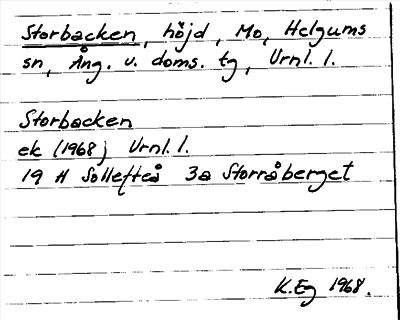 Storbacken, höjd, Mo, Helgums
sn, Ång. v. doms. tg, Urnl. 1.
Storbacken
ek (1968) Urnl. 1.
19 H Sollefteå 3a Storråberget
K.Eg 1968.